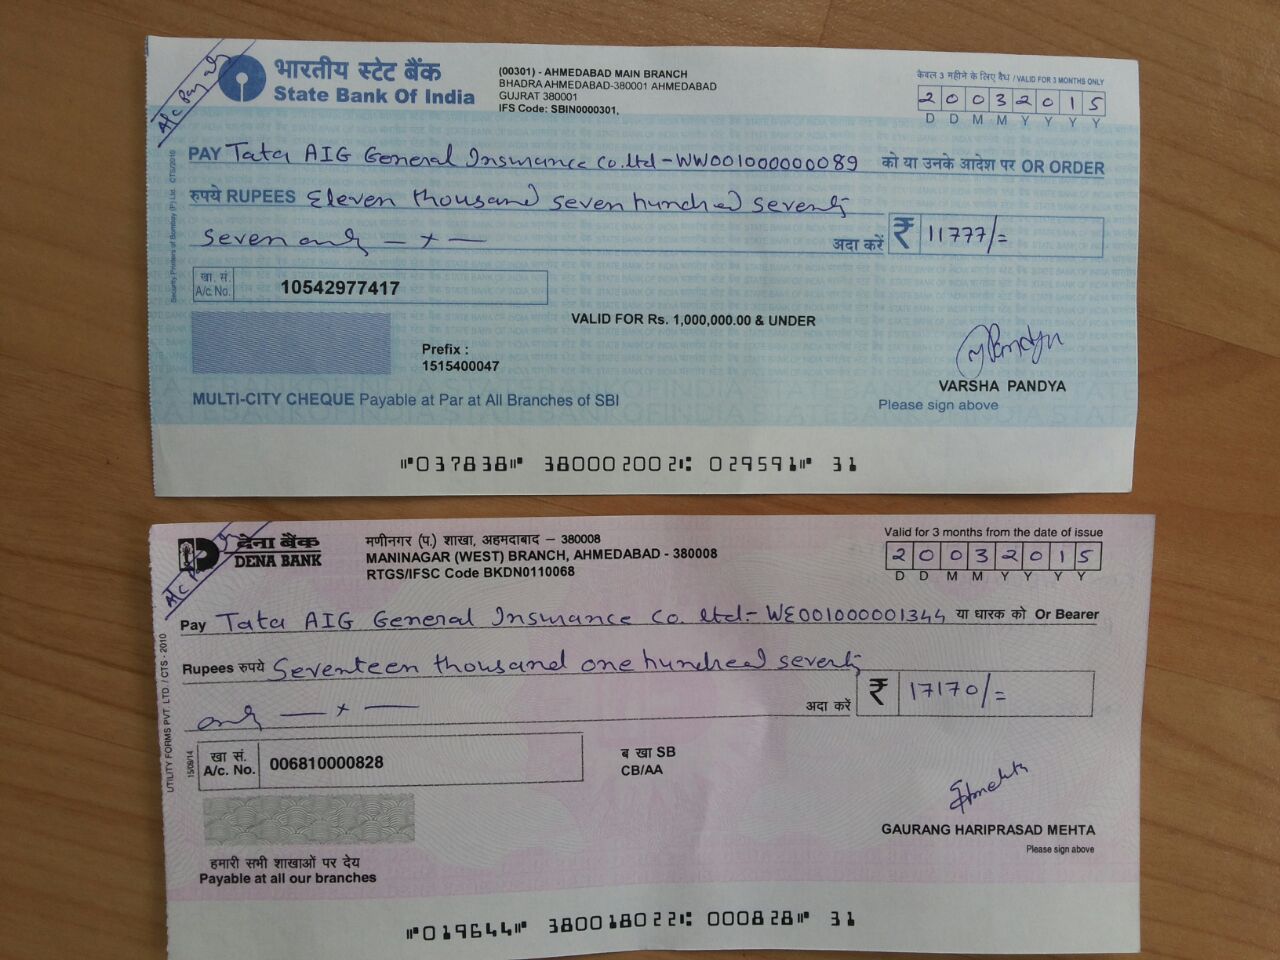 A/c Pay only
भारतीय स्टेट बैंक
State Bank Of India
(00301) - AHMEDABAD MAIN BRANCH
BHADRA AHMEDABAD-380001 AHMEDABAD
GUJRAT 380001
IFS Code: SBIN0000301,
केवल 3 महीने के लिए वैध / VALID FOR 3 MONTHS ONLY
2 0 0 3 2 0 1 5
D D M M Y Y Y Y
PAY Tata AIG General Insurance Co. ltd - WW001000000089 को या उनके आदेश पर OR ORDER
रुपये RUPEES Eleven thousand seven hundred seventy
seven only — x — अदा करें ₹ 11777/=
खा. सं.
A/c. No. 10542977417
VALID FOR Rs. 1,000,000.00 & UNDER
Prefix :
1515400047
VARSHA PANDYA
Please sign above
MULTI-CITY CHEQUE Payable at Par at All Branches of SBI
Security Printers of Bombay (P) Ltd. CTS/2010
⑈037838⑈ 380002002⑆ 029591⑈ 31
A/c Pay
देना बैंक
DENA BANK
मणीनगर (प.) शाखा, अहमदाबाद – 380008
MANINAGAR (WEST) BRANCH, AHMEDABAD - 380008
RTGS/IFSC Code BKDN0110068
Valid for 3 months from the date of issue
2 0 0 3 2 0 1 5
D D M M Y Y Y Y
Pay Tata AIG General Insurance Co. ltd.- WE001000001344 या धारक को Or Bearer
Rupees रुपये Seventeen thousand one hundred seventy
only — x — अदा करें ₹ 17170/=
खा सं.
A/c. No. 006810000828
ब खा SB
CB/AA
GAURANG HARIPRASAD MEHTA
Please sign above
हमारी सभी शाखाओं पर देय
Payable at all our branches
UTILITY FORMS PVT. LTD. / CTS - 2010
15/09/14
⑈019644⑈ 380018022⑆ 000828⑈ 31